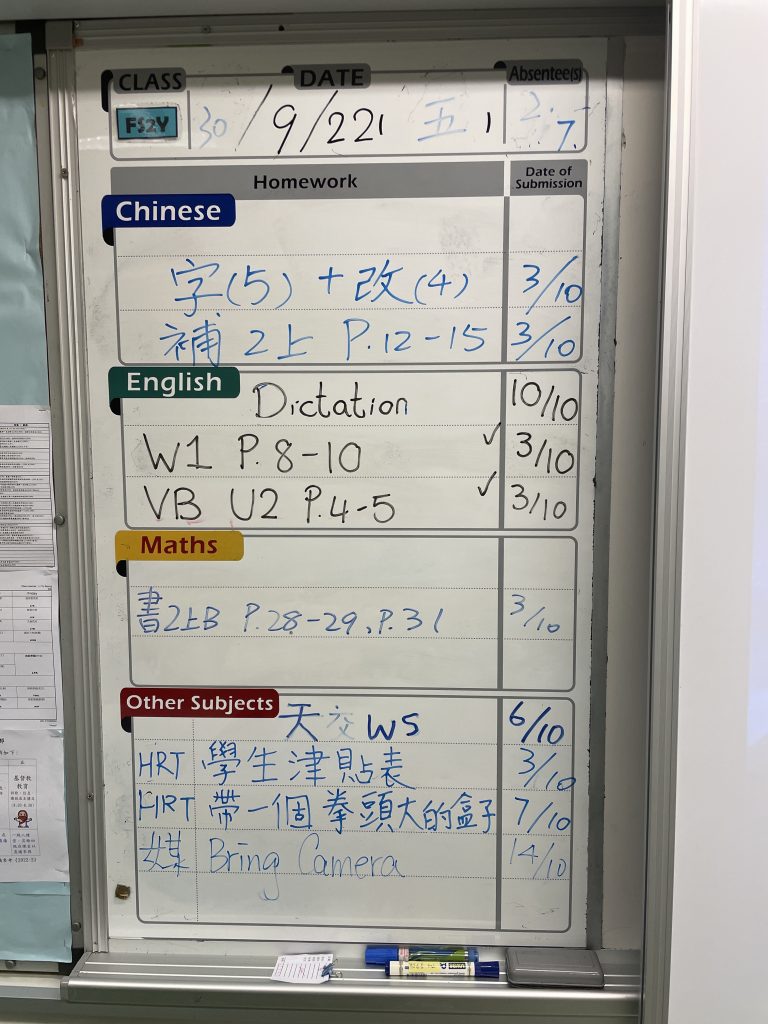 CLASS DATE Absentee(s)
FS2Y 30/9/22 五 2. 7.
Homework Date of Submission
Chinese
字(5) + 改(4) 3/10
補 2上 P.12-15 3/10
English
Dictation 10/10
W1 P.8-10 ✓ 3/10
VB U2 P.4-5 ✓ 3/10
Maths
書2上B P.28-29, P.31 3/10
Other Subjects
天交 WS 6/10
HRT 學生津貼表 3/10
HRT 帶一個拳頭大的盒子 7/10
媒 Bring Camera 14/10
基督教
教育